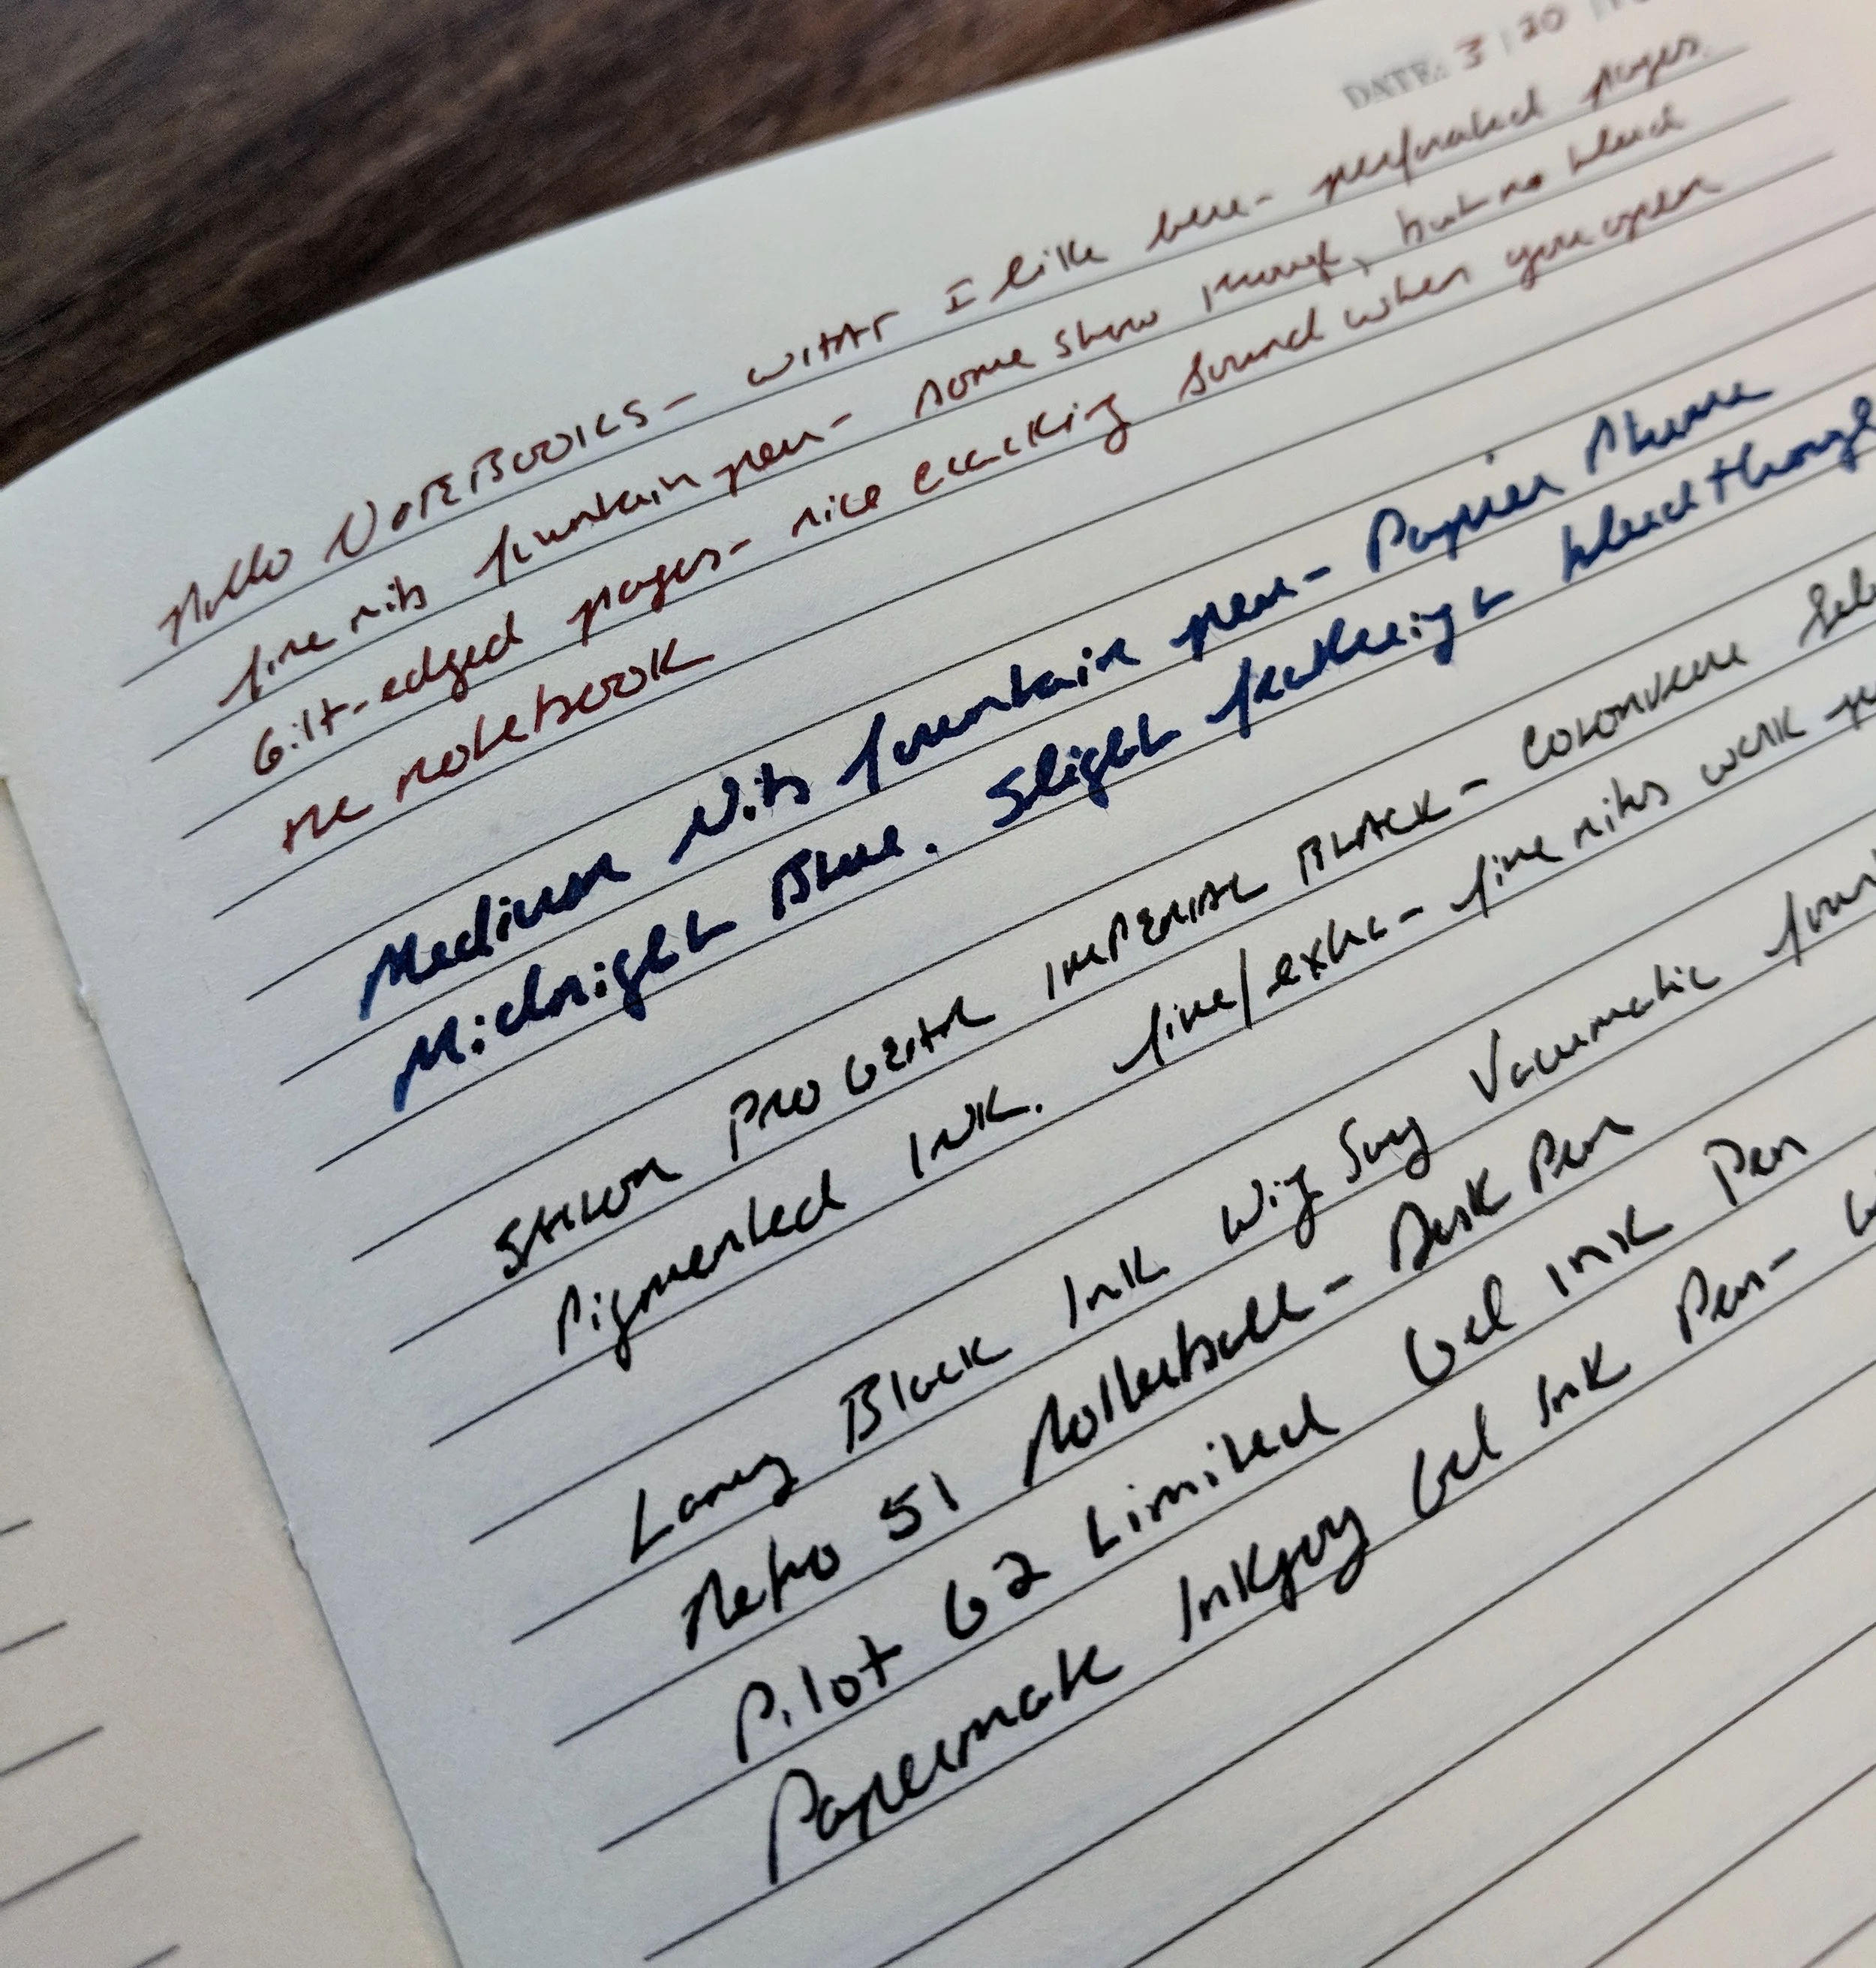 DATE: 3 | 20
NOTEBOOKS - WHAT I like here - perforated pages.
fine nibs fountain pen - some show through, but no bleed
Gilt-edged pages - nice cracking sound when you open
the notebook
Medium Nibs fountain pen - Papier Plume
Midnight Blue. Slight feathering & bleedthrough
SAILOR PRO GEAR IMPERIAL BLACK -
Pigmented INK. fine/extra-fine nibs work
Lamy Black Ink Wing Sung Vacumatic
Retro 51 Rollerball - Desk Pen
Pilot G2 Limited Gel Ink Pen
Papermate Inkjoy Gel Ink Pen -